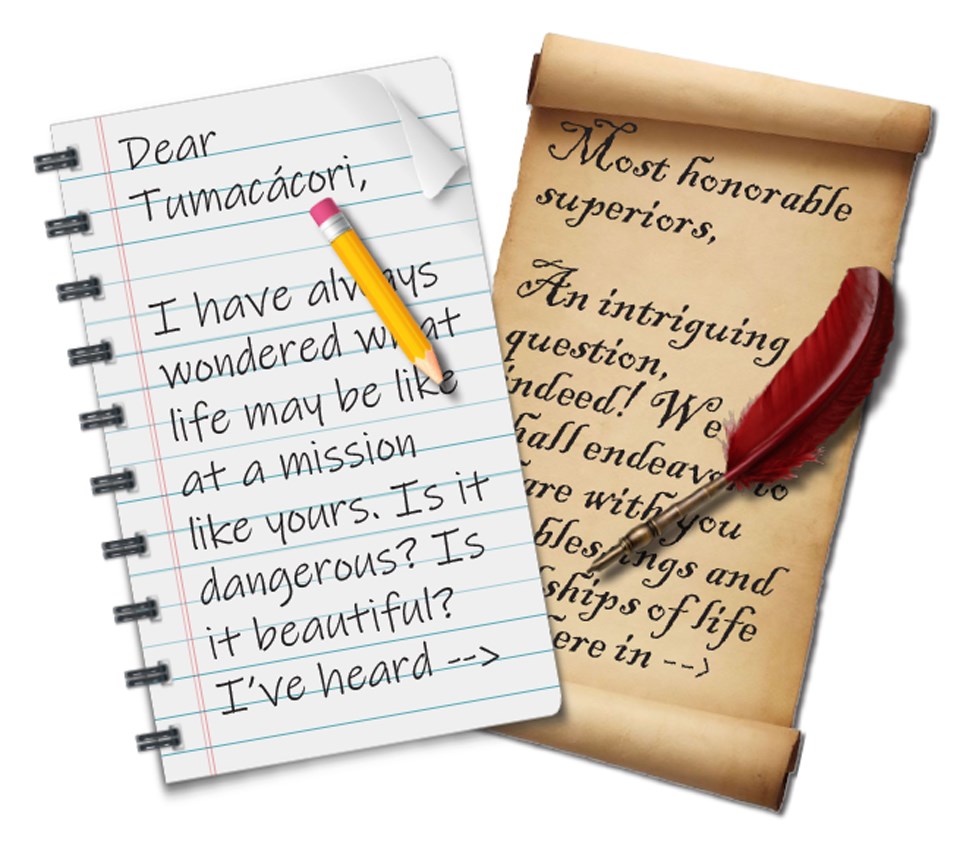 Dear
Tumacácori,
I have always
wondered what
life may be like
at a mission
like yours. Is it
dangerous? Is
it beautiful?
I've heard -->
Most honorable
superiors,
An intriguing
question,
indeed! We
hall endeavor to
are with you
blessings and
ships of life
ere in -->